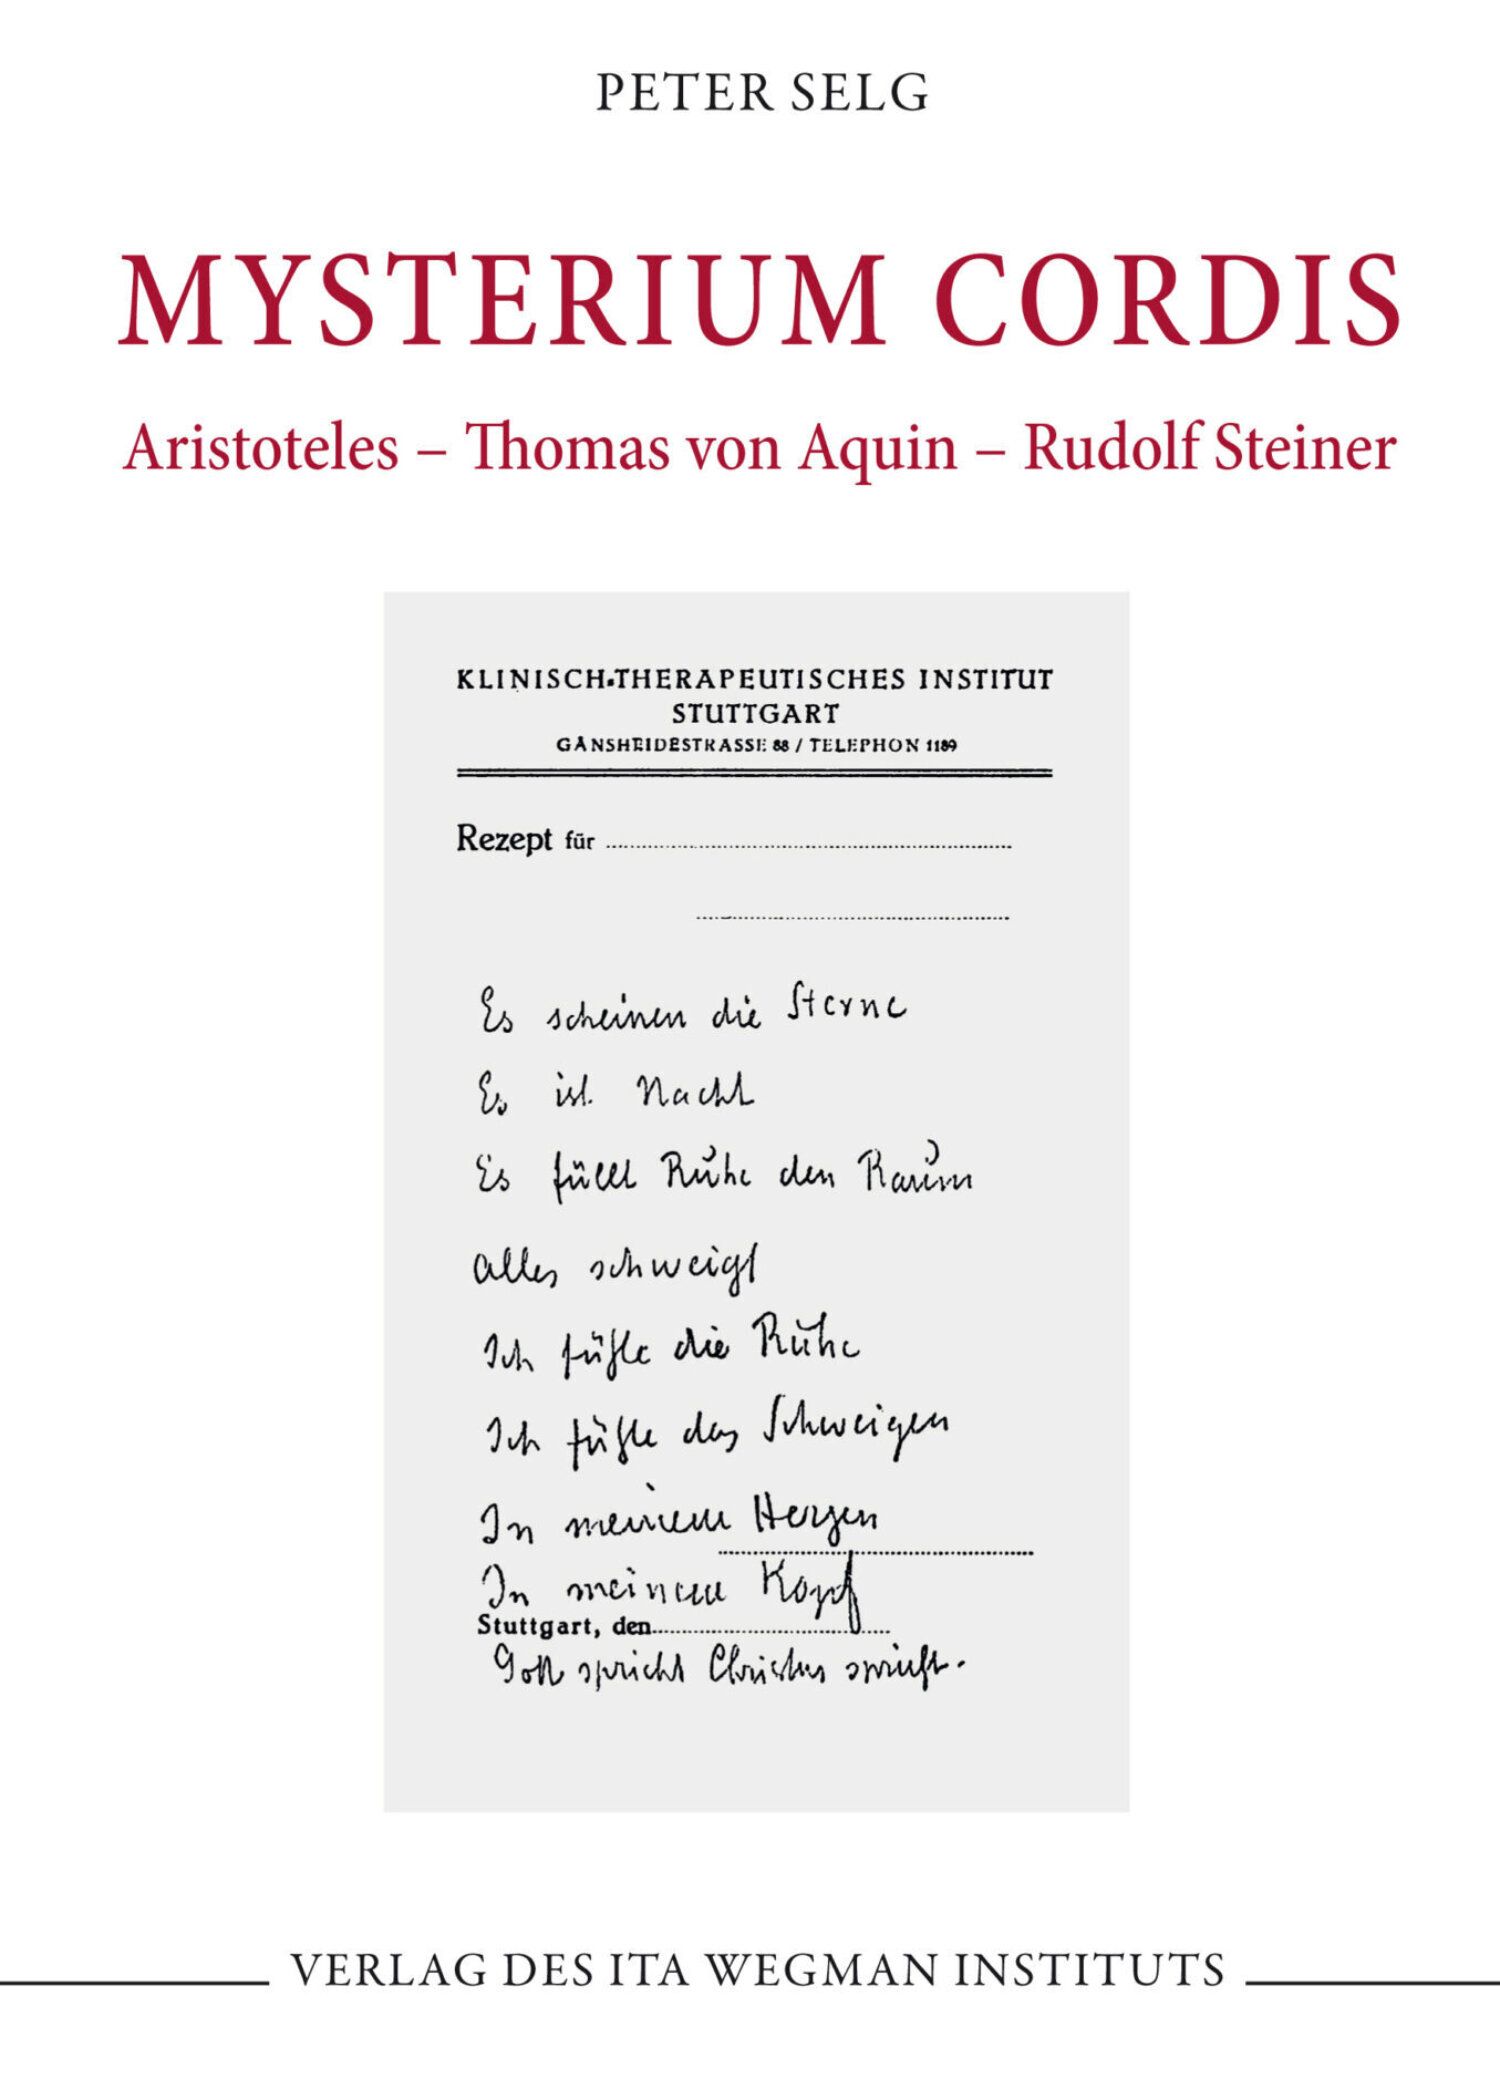 PETER SELG
MYSTERIUM CORDIS
Aristoteles – Thomas von Aquin – Rudolf Steiner
KLINISCH-THERAPEUTISCHES INSTITUT
STUTTGART
GÄNSHEIDESTRASSE 88 / TELEPHON 1189
Rezept für
Es scheinen die Sterne
Es ist Nacht
Es füllt Ruhe den Raum
alles schweigt
Ich fühle die Ruhe
Ich fühle das Schweigen
In meinem Herzen
In meinem Kopf
Stuttgart, den
Gott spricht Christus spricht.
VERLAG DES ITA WEGMAN INSTITUTS